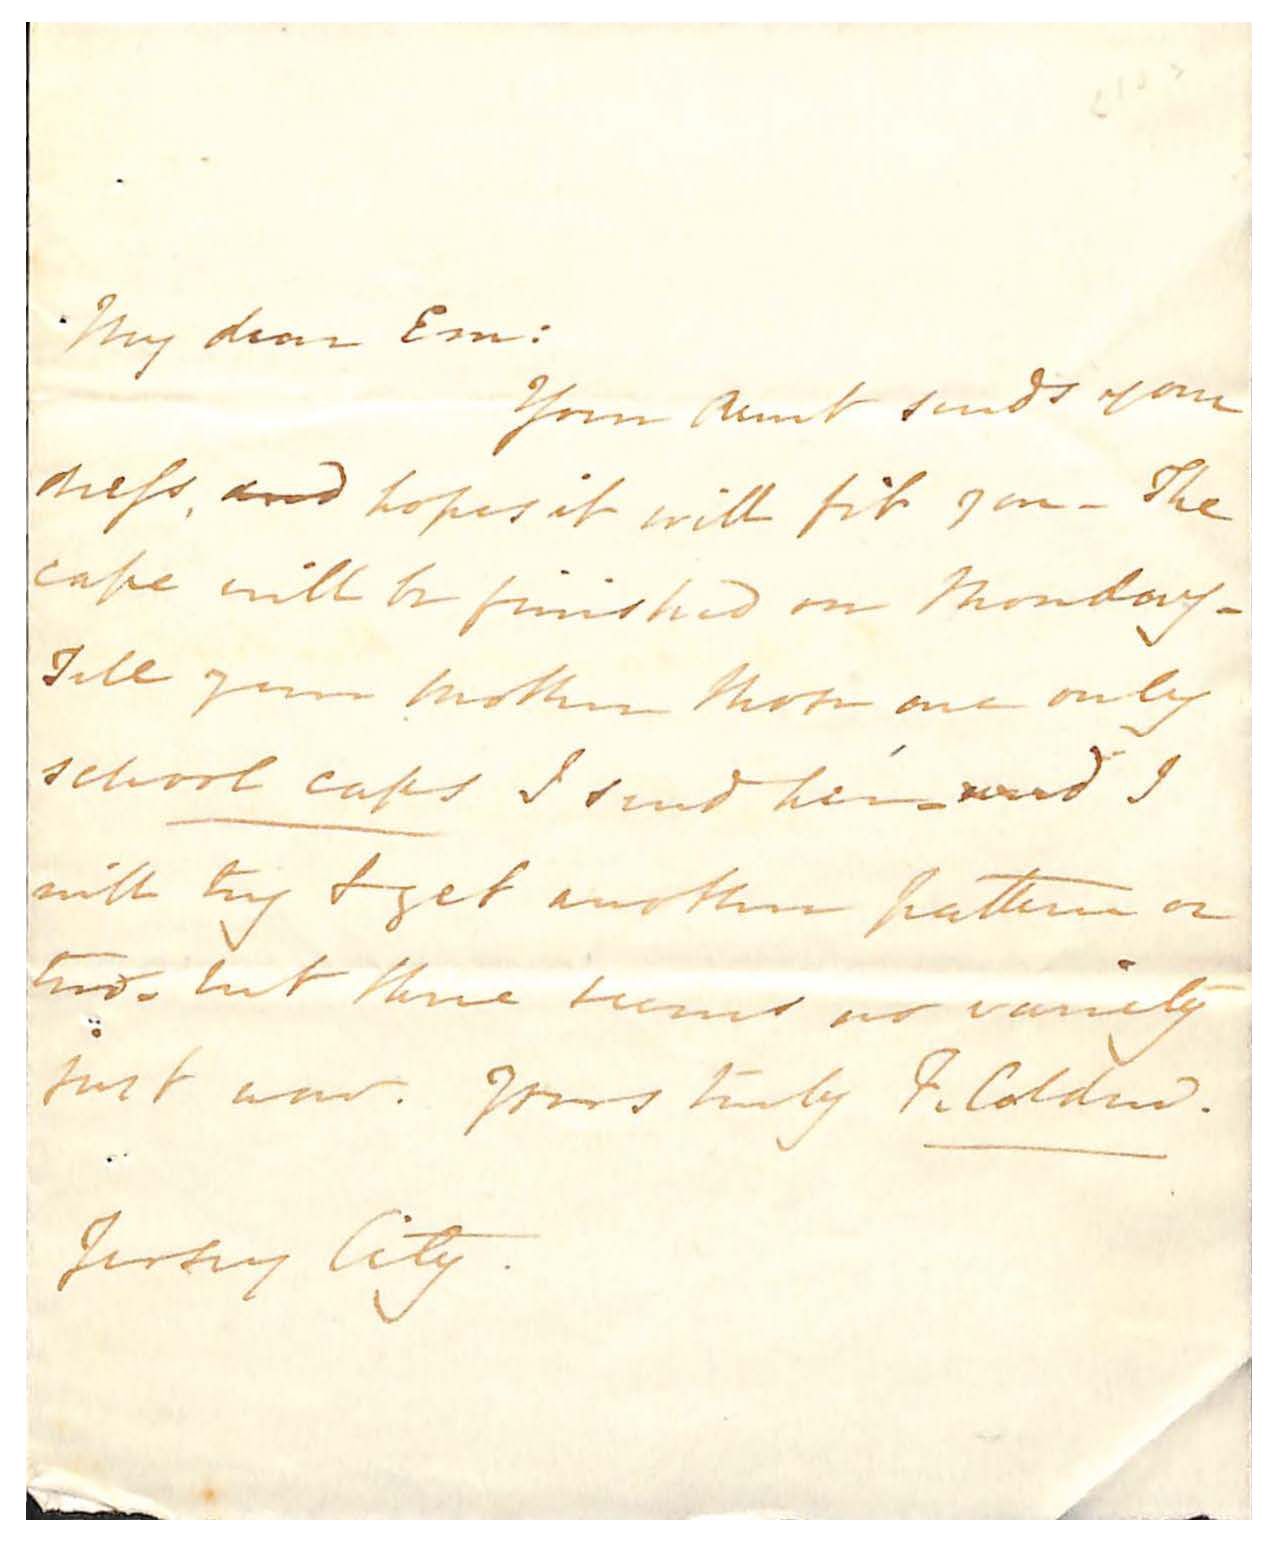 My dear Em:
Your Aunt sends your
dress, and hopes it will fit you - The
cape will be finished on Monday -
Tell your mother those are only
school caps I send her - and I
will try & get another pattern or
two - but there seems no variety
just now. Yours truly F. Colden.
Jersey City.